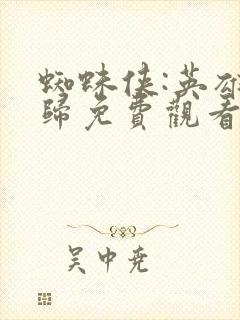 蜘蛛俠:英雄
歸免費觀看
吴中尭